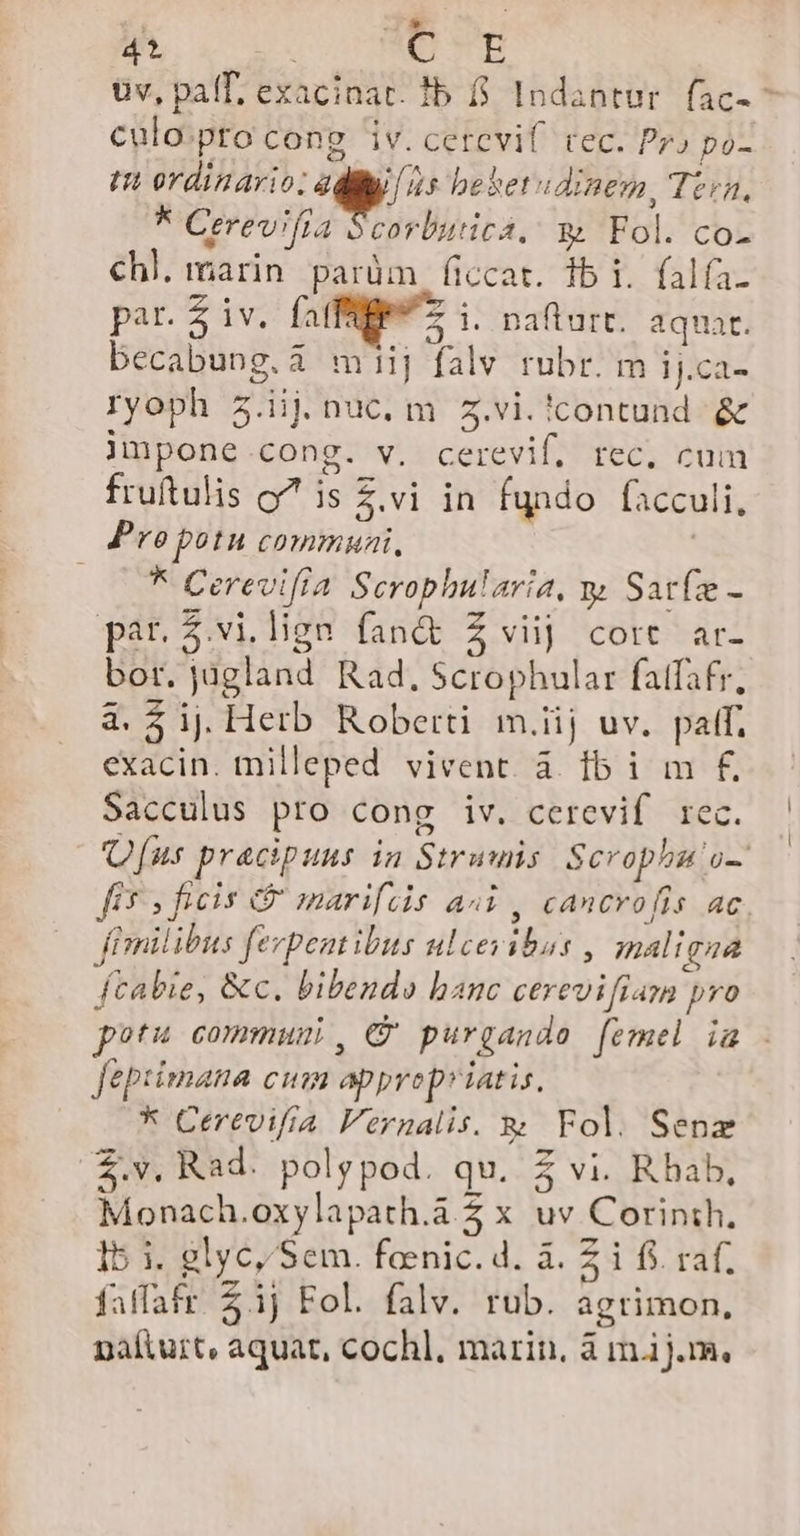 42 C E
uv, paſſ. exacinat. ℔ ß Indantur ſac-
culo pro cong iv. cereviſ rec. Pro po-
tu ordinario: ad viſûs hebetudinem, Tern.
* Cereviſia Scorbutica, ℞ Fol. co-
chl. marin parùm ſiccat. ℔ i. ſalſa-
par. ℥ iv. ſaſſafr ℥ i. naſturt. aquat.
becabung. ā m iij ſalv rubr. m ij.ca-
ryoph ʒ.iij. nuc, m ʒ.vi. contund &
impone cong. v. cereviſ, rec, cum
fruſtulis ♂ is ℥.vi in fundo ſacculi.
Pro potu communi.
* Cereviſia Scrophularia, ℞ Sarſæ -
par, ℥.vi. lign ſanct ℥ viij cort ar-
bor. jugland Rad, Scrophular ſaſſafr,
ā. ℥ ij. Herb Roberti m.iij uv. paſſ.
exacin. milleped vivent ā ℔ i m f.
Sacculus pro cong iv. cereviſ rec.
Uſus præcipuus in Strumis Scrophu'o-
ſis, ficis & mariſcis ani, cancroſis ac
ſimilibus ſerpentibus ulceribus, maligna
ſcabie, &c. bibendo hanc cereviſiam pro
potu communi, & purgando ſemel in
ſeptimana cum appropriatis.
* Cereviſia Vernalis. ℞ Fol. Senæ
℥.v. Rad. polypod. qu. ℥ vi. Rhab,
Monach.oxylapath.ā ℥ x uv Corinth.
℔ i. glyc, Sem. fœnic. d. ā. ℥ i ß. raſ.
ſaſſafr ℥ ij Fol. ſalv. rub. agrimon,
naſturt, aquat, cochl, marin, ā m.ij.m,